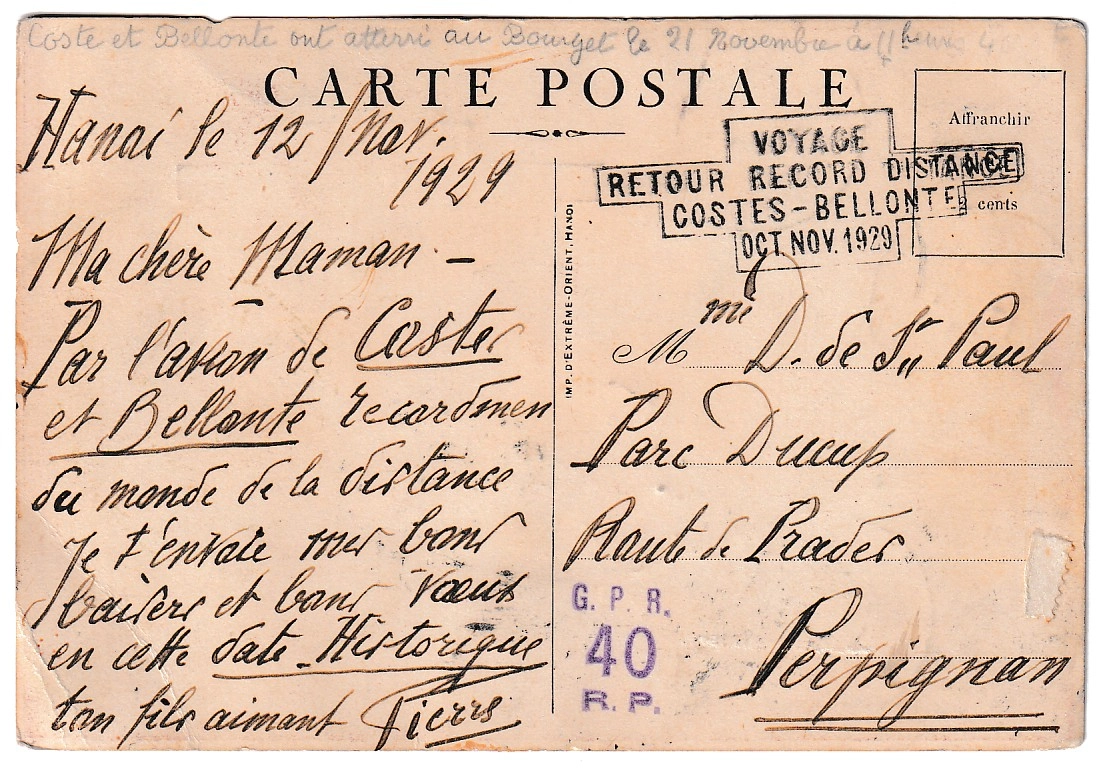 Coste et Bellonte ont atterri au Bourget le 21 Novembre à 11 heures
CARTE POSTALE
Hanoi le 12 Nov.
1929
Ma chère Maman -
Par l'avion de Costes
et Bellonte recordmen
du monde de la distance
Je t'envoie mes bons
baisers et bons vœux
en cette date Historique
ton fils aimant Pierre
IMP. D'EXTRÊME-ORIENT, HANOI
VOYAGE
RETOUR RECORD DISTANCE
COSTES-BELLONTE
OCT. NOV. 1929
Affranchir
2 cents
Mme D. de St Paul
Parc Ducup
Route de Prades
Perpignan
G. P. R.
40
R. P.